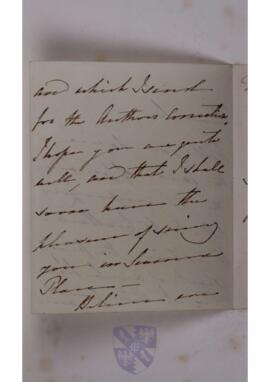 and which I send
for the Authors
I hope you are quite
well, and that I shall
soon have the
pleasure of seeing
you in
Place —
Believe me